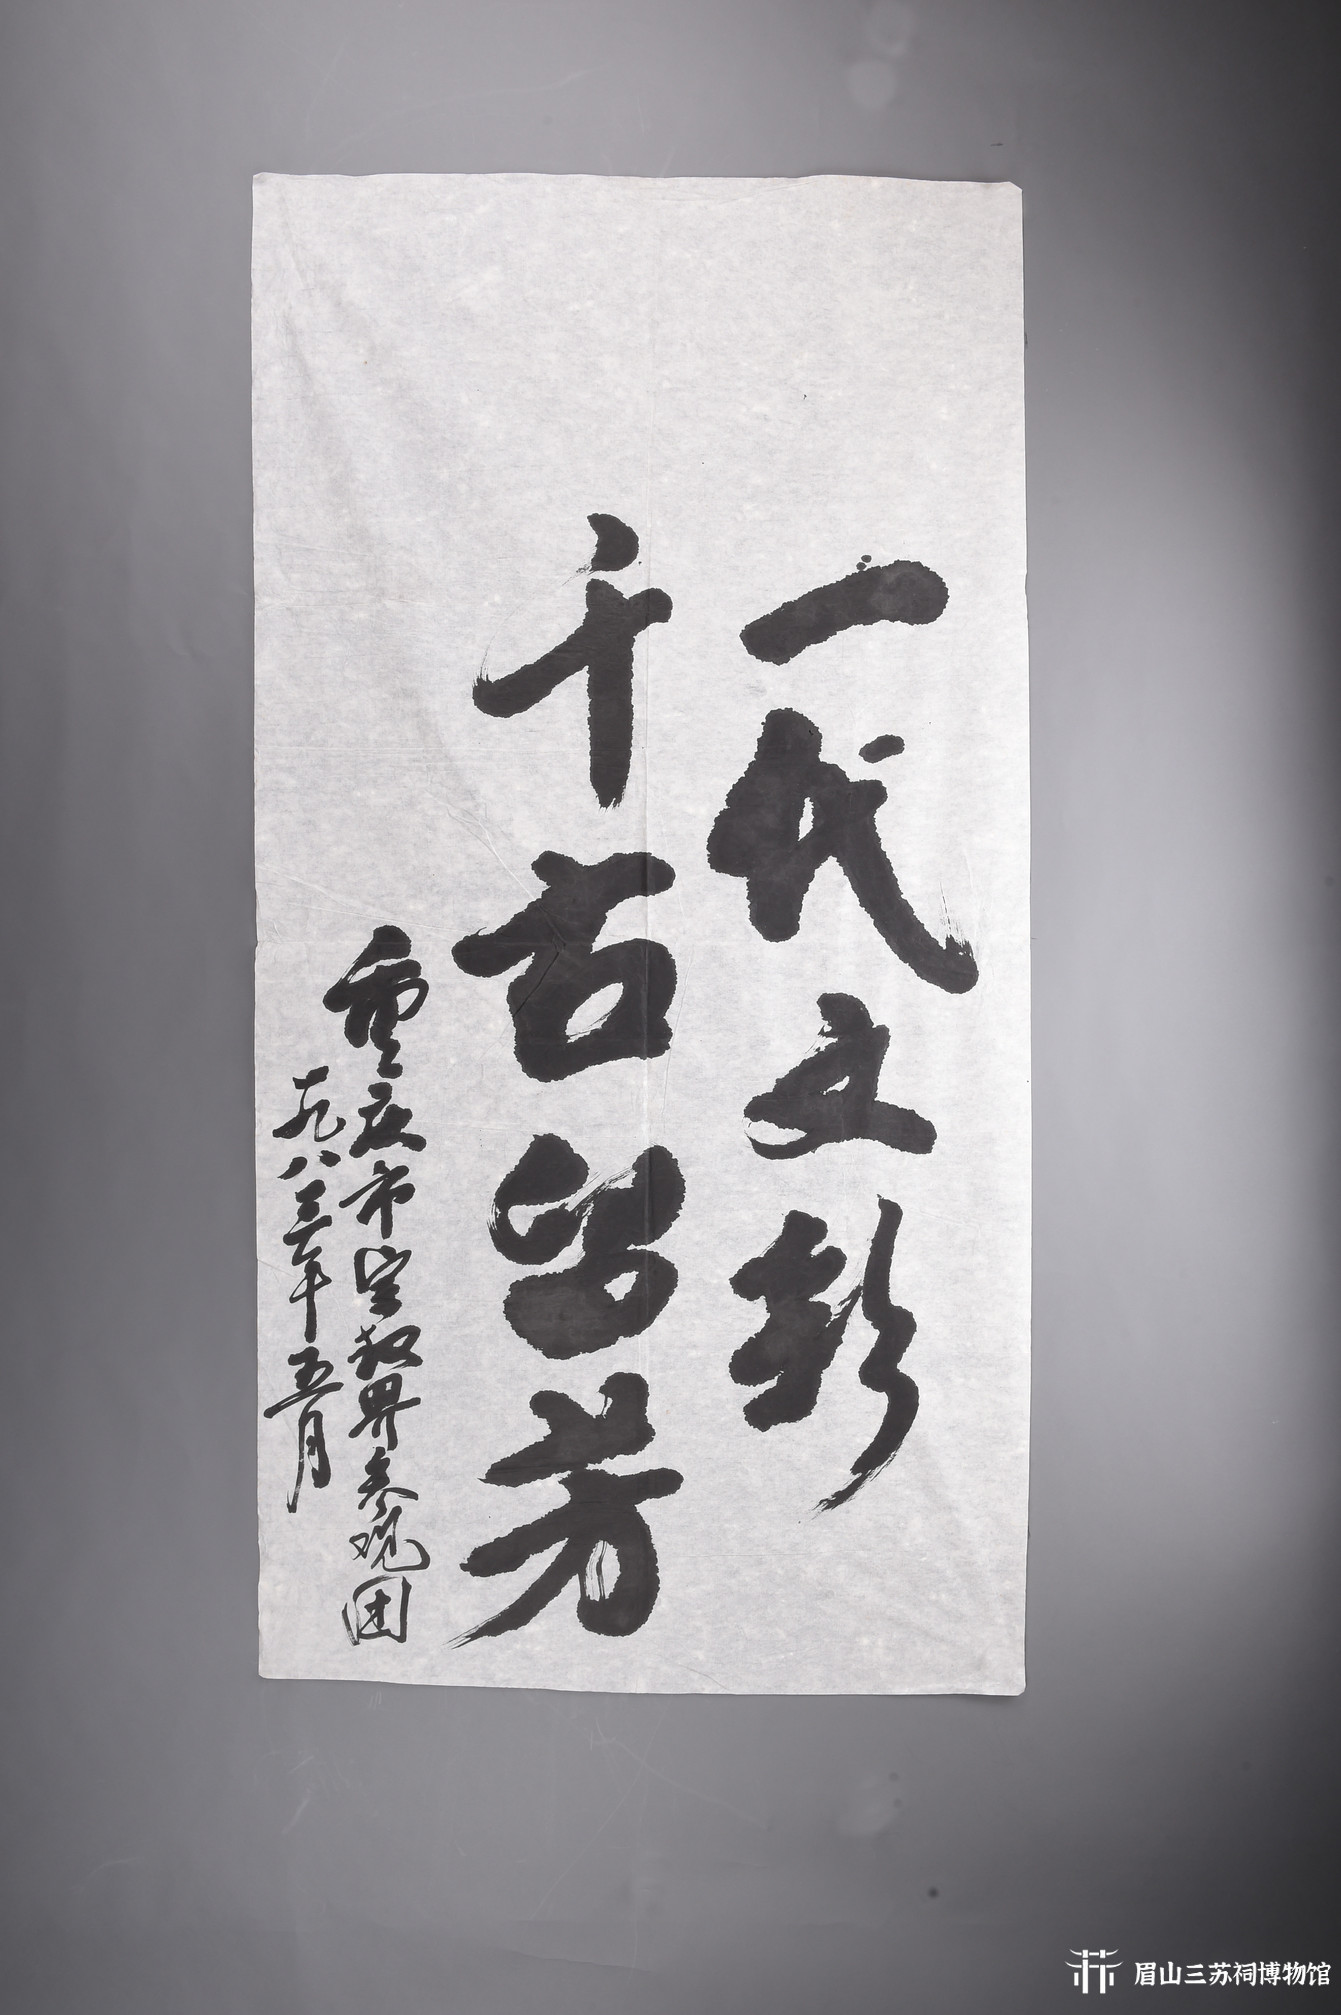 一代文彩
千古留芳
重庆市宗教界参观团
一九八三年五月
眉山三苏祠博物馆